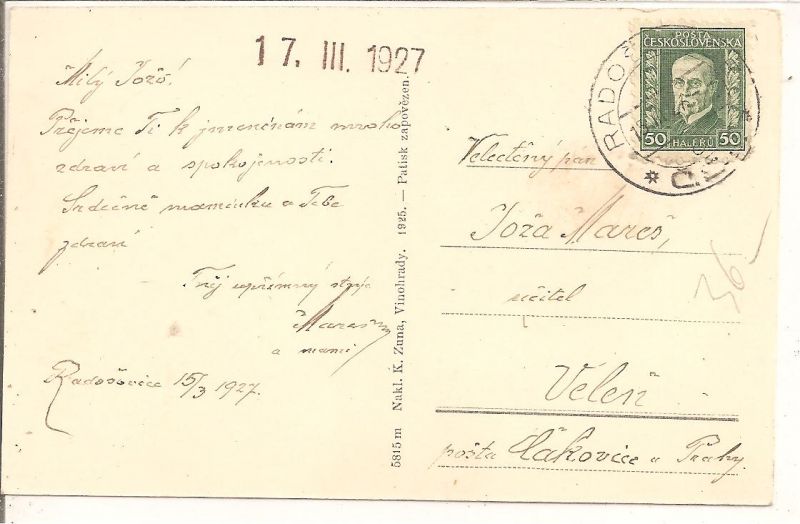 17. III. 1927
Milý Jožo!
Přejeme Ti k jmeninám mnoho
zdraví a spokojenosti.
Srdečně maminku a Tebe
zdraví
Tvůj upřímný strýc
Mareš
a mami
Radošovice 15/3 1927.
5815 m Nakl. K. Zuna, Vinohrady. 1925. — Patisk zapovězen.
POŠTA
ČESKOSLOVENSKÁ
50 HALÉŘŮ 50
RADOŠ
Velectěný pán
Joža Mareš,
učitel
Veleň
pošta Čakovice u Prahy.
36